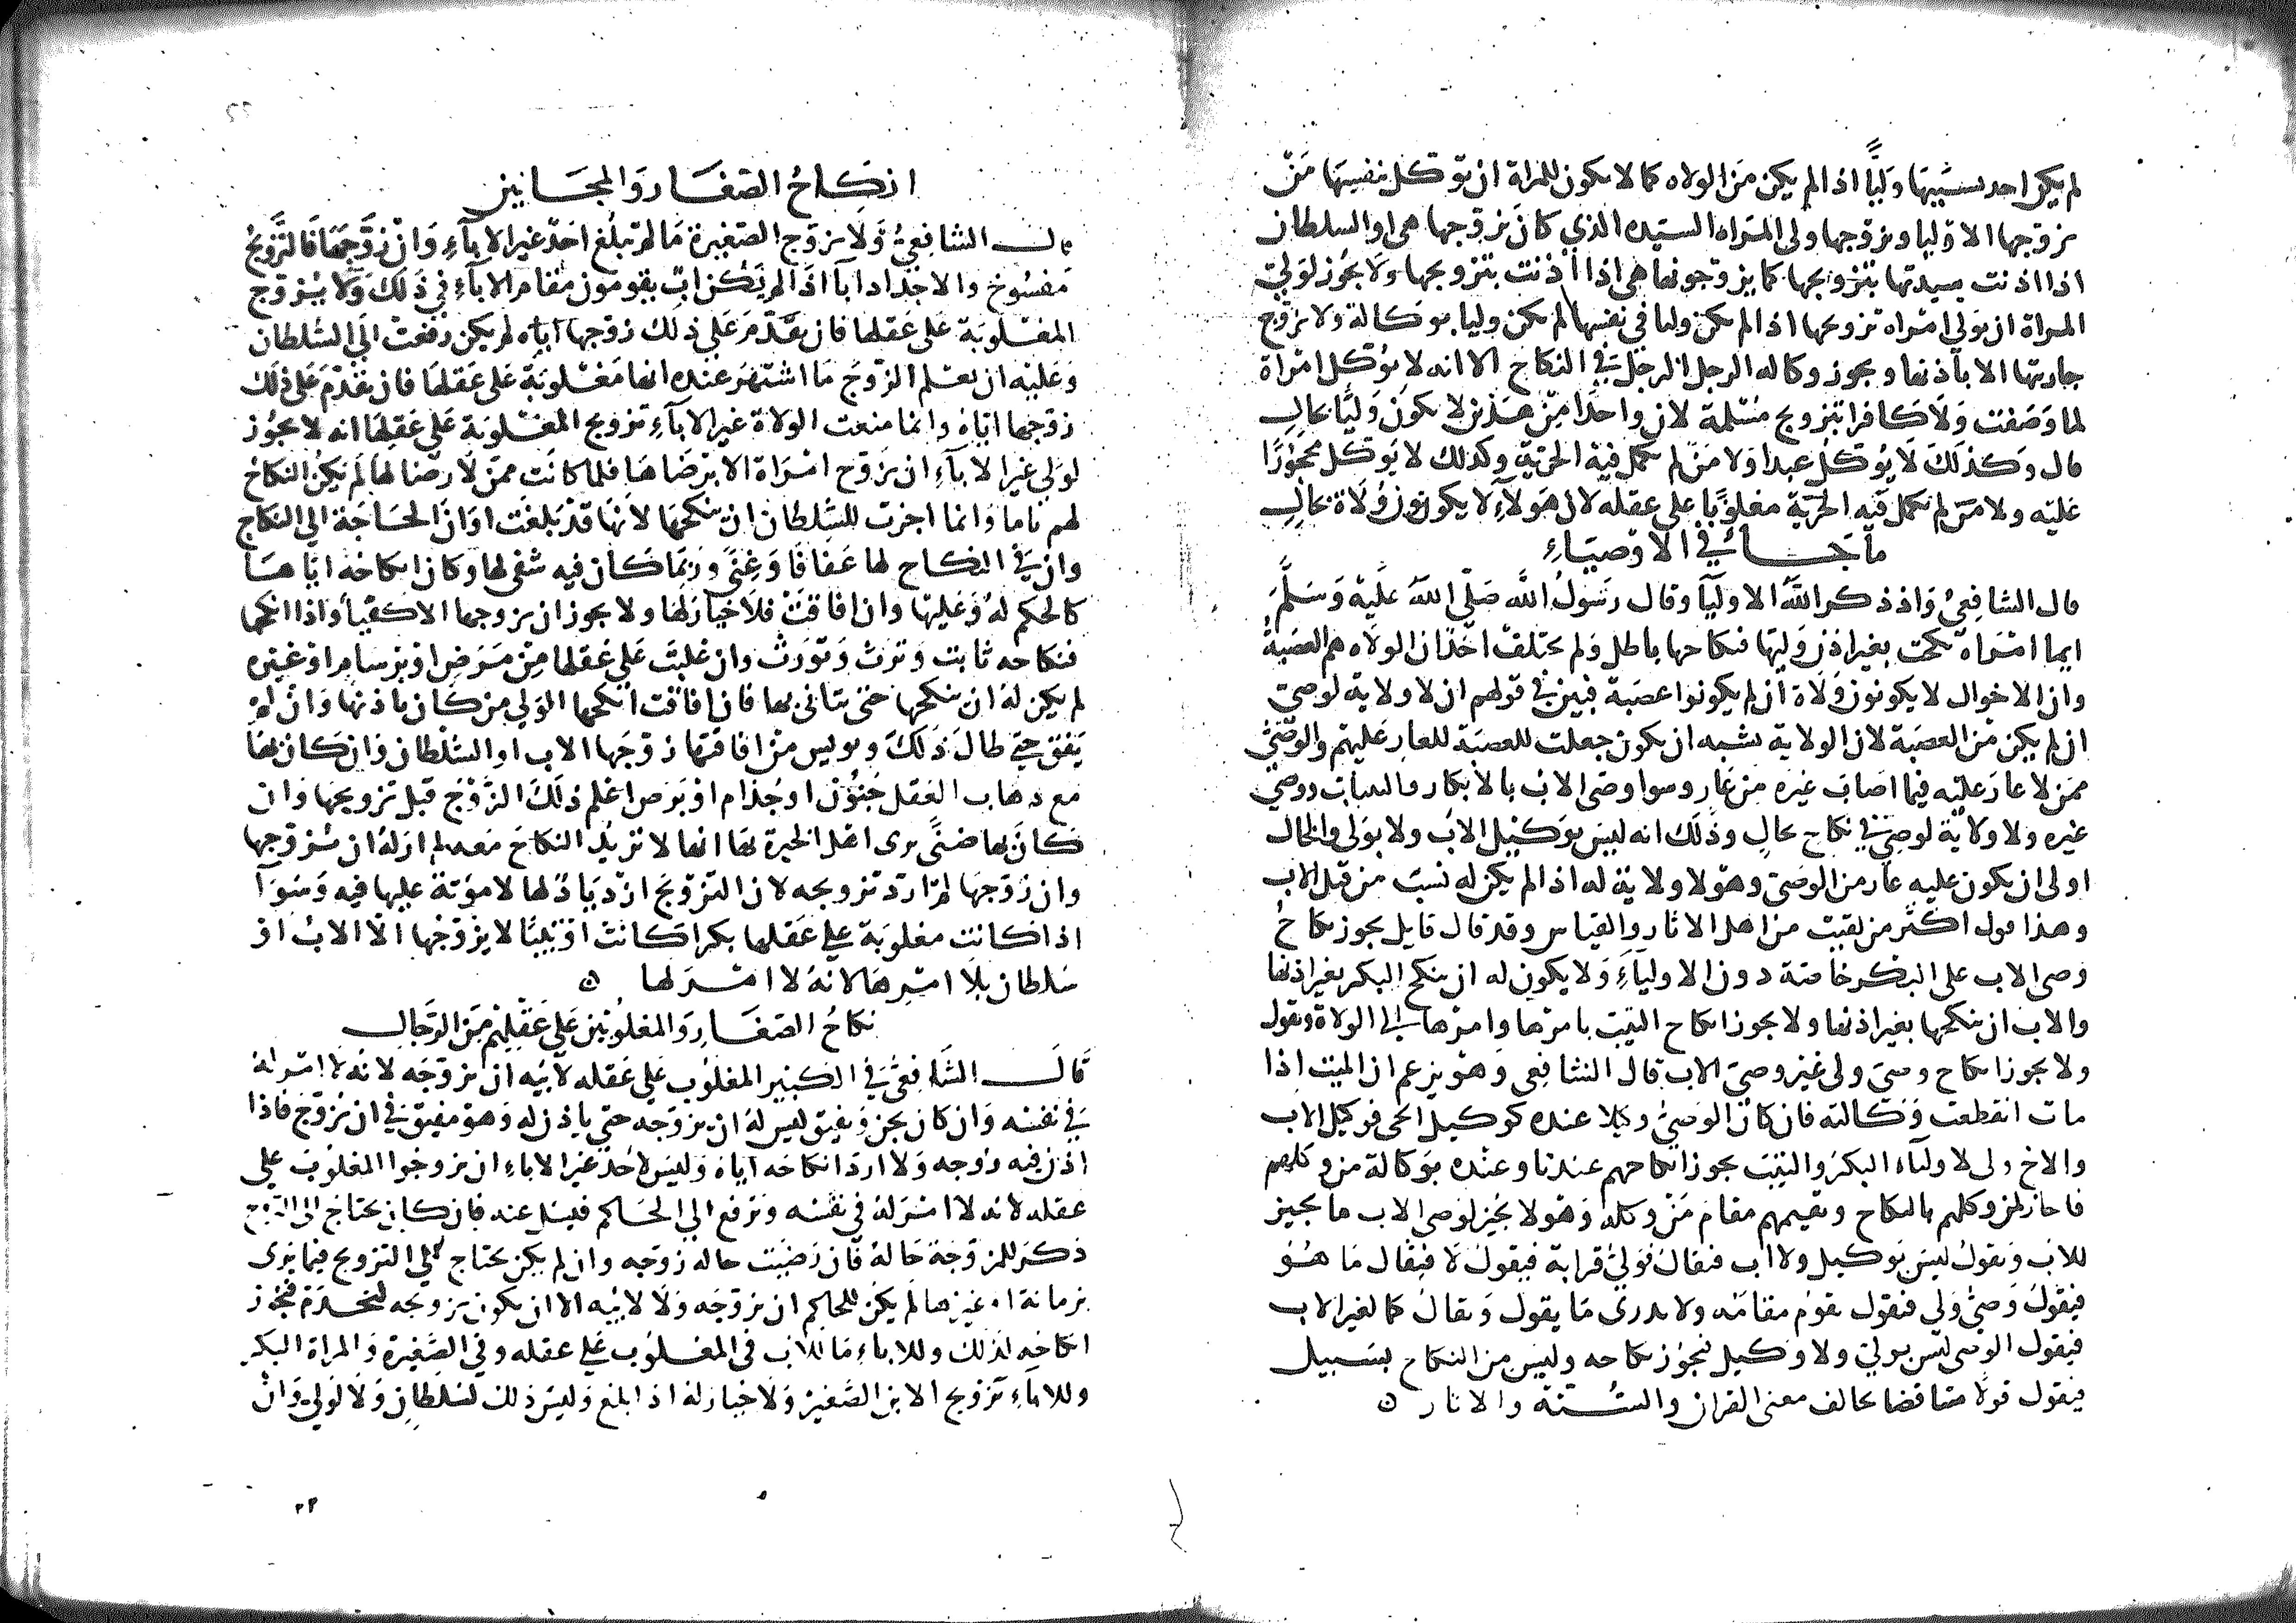 لم يكن احد بسببها وليًّا اذا لم يكن من الولاه كما لا يكون للمراة ان توكل بنفسها من
يزوجها الا وليا ويزوجها ولى المراه السيده الذي كان يزوجها هى او السلطان
اذا اذنت سيدتها بتزويجها كما يزوجونها هى اذا أذنت بتزويجها ولا يجوز لولى
المراة ان يولى امراه تزويجها اذا لم يكن وليا فى نفسها لم يكن وليا بوكالة ولا يزوج
جاريتها الا باذنها ويجوز وكاله الرجل الرجل في النكاح الا انه لا يوكل امراة
لما وصفت ولا كافرا بتزويج مسلمة لان واحدا من هذين لا يكون وليًّا بحال
قال وكذلك لا يوكل عبدا ولا من لم تكمل فيه الحرية وكذلك لا يوكل محجورًا
عليه ولا من لم تكمل فيه الحرية مغلوبًا على عقله لان هولآء لا يكونون ولاة بحال
ما جـــاء في الاوصياء
قال الشافعى واذ ذكر الله الاوليآ وقال رسول الله صلى الله عليه وسلم
ايما امراه نكحت بغير اذن وليها فنكاحها باطل ولم يختلف احد ان الولاه هم العصبة
وان الاخوال لا يكونون ولاة ان لم يكونوا عصبة فبين في قولهم ان لا ولاية لوصى
ان لم يكن من العصبة لان الولاية يشبه ان يكون جعلت للعصبة للعار عليهم والوصى
ممن لا عار عليه فيما اصاب غيره من عار وسوا وصى الاب بالابكار والثيبات ووصي
غيره ولا ولاية لوصى في نكاح بحال وذلك انه ليس بوكيل الاب ولا بولى والخال
اولى ان يكون عليه عار من الوصى وهو لا ولاية له اذا لم يكن له نسب من قبل الاب
وهذا قول اكثر من لقيت من اهل الاثار والقياس وقد قال قايل يجوز نكاح
وصى الاب على البكر خاصة دون الاوليآء ولا يكون له ان ينكح البكر بغير اذنها
والاب ان ينكحها بغير اذنها ولا يجوز انكاح الثيب بامرها وامرها الى الولاة ونقول
ولا يجوز انكاح وصى ولى غير وصى الاب قال الشافعى وهو يزعم ان الميت اذا
مات انقطعت وكالته فان كان الوصى وكيلا عنده كوكيل الحى فوكيل الاب
والاخ ولى لاوليآء البكر والثيب يجوز انكاحهم عندنا وعنده بوكالة من وكلهم
فاجاز لمن وكلهم بالنكاح ونقيمهم مقام من وكله وهو لا يجيز لوصى الاب ما يجيز
للاب ونقول ليس بوكيل ولا اب فنقال فولى قرابة فيقول لا فيقال ما هو
فيقول وصى ولى فنقول يقوم مقامه ولا يدرى ما يقول ونقال كما لغير الاب
فيقول الوصى ليس بولى ولا وكيل فيجوز نكاحه وليس من النكاح بسبيل
فيقول قولا متناقضا يخالف معنى القران والسنة والاثار ۞
انكاح الصغار والمجانين
قال الشافعى ولا يزوج الصغيرة ما لم تبلغ احد غير الابآء وان زوجها فالتزويج
مفسوخ والاجداد ابآ اذا لم يكن اب يقومون مقام الابآء في ذلك ولا يزوج
المغلوبة على عقلها فان يقدم على ذلك زوجها اياه لم يكن رفعت الى السلطان
وعليه ان يعلم الزوج ما اشتهر عنده انها مغلوبة على عقلها فان يقدم على ذلك
زوجها اياه وانما منعت الولاة غير الابآء تزويج المغلوبة على عقلها انه لا يجوز
لولى غير الابآء ان يزوج امراة الا برضاها فلما كانت ممن لا رضا لها لم يكن النكاح
لهم تاما وانما اجزت للسلطان ان ينكحها لانها قد بلغت اوان الحاجة الى النكاح
وان في النكاح لها عفافا وغنى وربما كان فيه شفى لها وكان انكاحه اياها
كالحكم له وعليها وان افاقت فلا خيار لها ولا يجوز ان يزوجها الا كفيا واذا انكحها
فنكاحه ثابت وترث وتورث وان غلبت على عقلها من مرض او برسام او غيره
لم يكن له ان ينكحها حتى يتانى بها فان افاقت انكحها الولي من كان باذنها وان لم
يفق حتى طال ذلك ويويس من افاقتها زوجها الاب او السلطان وان كان بها
مع ذهاب العقل جنون او جذام او برص اعلم ذلك الزوج قبل تزويجها وان
كان بها ضنى يرى اهل الخبرة بها انها لا تريد النكاح معه لم ار له ان يزوجها
وان زوجها لم ارد تزويجه لان التزويج ازديادا لها لا مونة عليها فيه وسوآ
اذا كانت مغلوبة على عقلها بكرا كانت او ثيبًا لا يزوجها الا الاب او
سلطان بلا امرها لانه لا امر لها ۞
نكاح الصغار والمغلوبين على عقلهم من الرجال
قال الشافعى في الكبير المغلوب على عقله لابيه ان يزوجه لانه لا امر له
في نفسه وان كان يجن ويفيق ليس له ان يزوجه حتى ياذن له وهو مفيق في ان يزوج فاذا
اذن فيه زوجه ولا ارد انكاحه اياه وليس لاحد غير الاباء ان يزوجوا المغلوب على
عقله لانه لا امر له في نفسه وترفع الى الحاكم فيسل عنه فان كان يحتاج الى التزويج
ذكر للمزوجة حاله فان رضيت حاله زوجه وان لم يكن يحتاج الى التزويج فيما يرى
بزمانة او غيرها لم يكن للحاكم ان يزوجه ولا لابيه الا ان يكون يزوجه ليخدم فيجوز
انكاحه لذلك وللاباء ما للاب فى المغلوب على عقله وفي الصغيرة والمراة البكر
وللاباء تزويج الابن الصغير ولا خيار له اذا بلغ وليس ذلك لسلطان ولا لولى وان